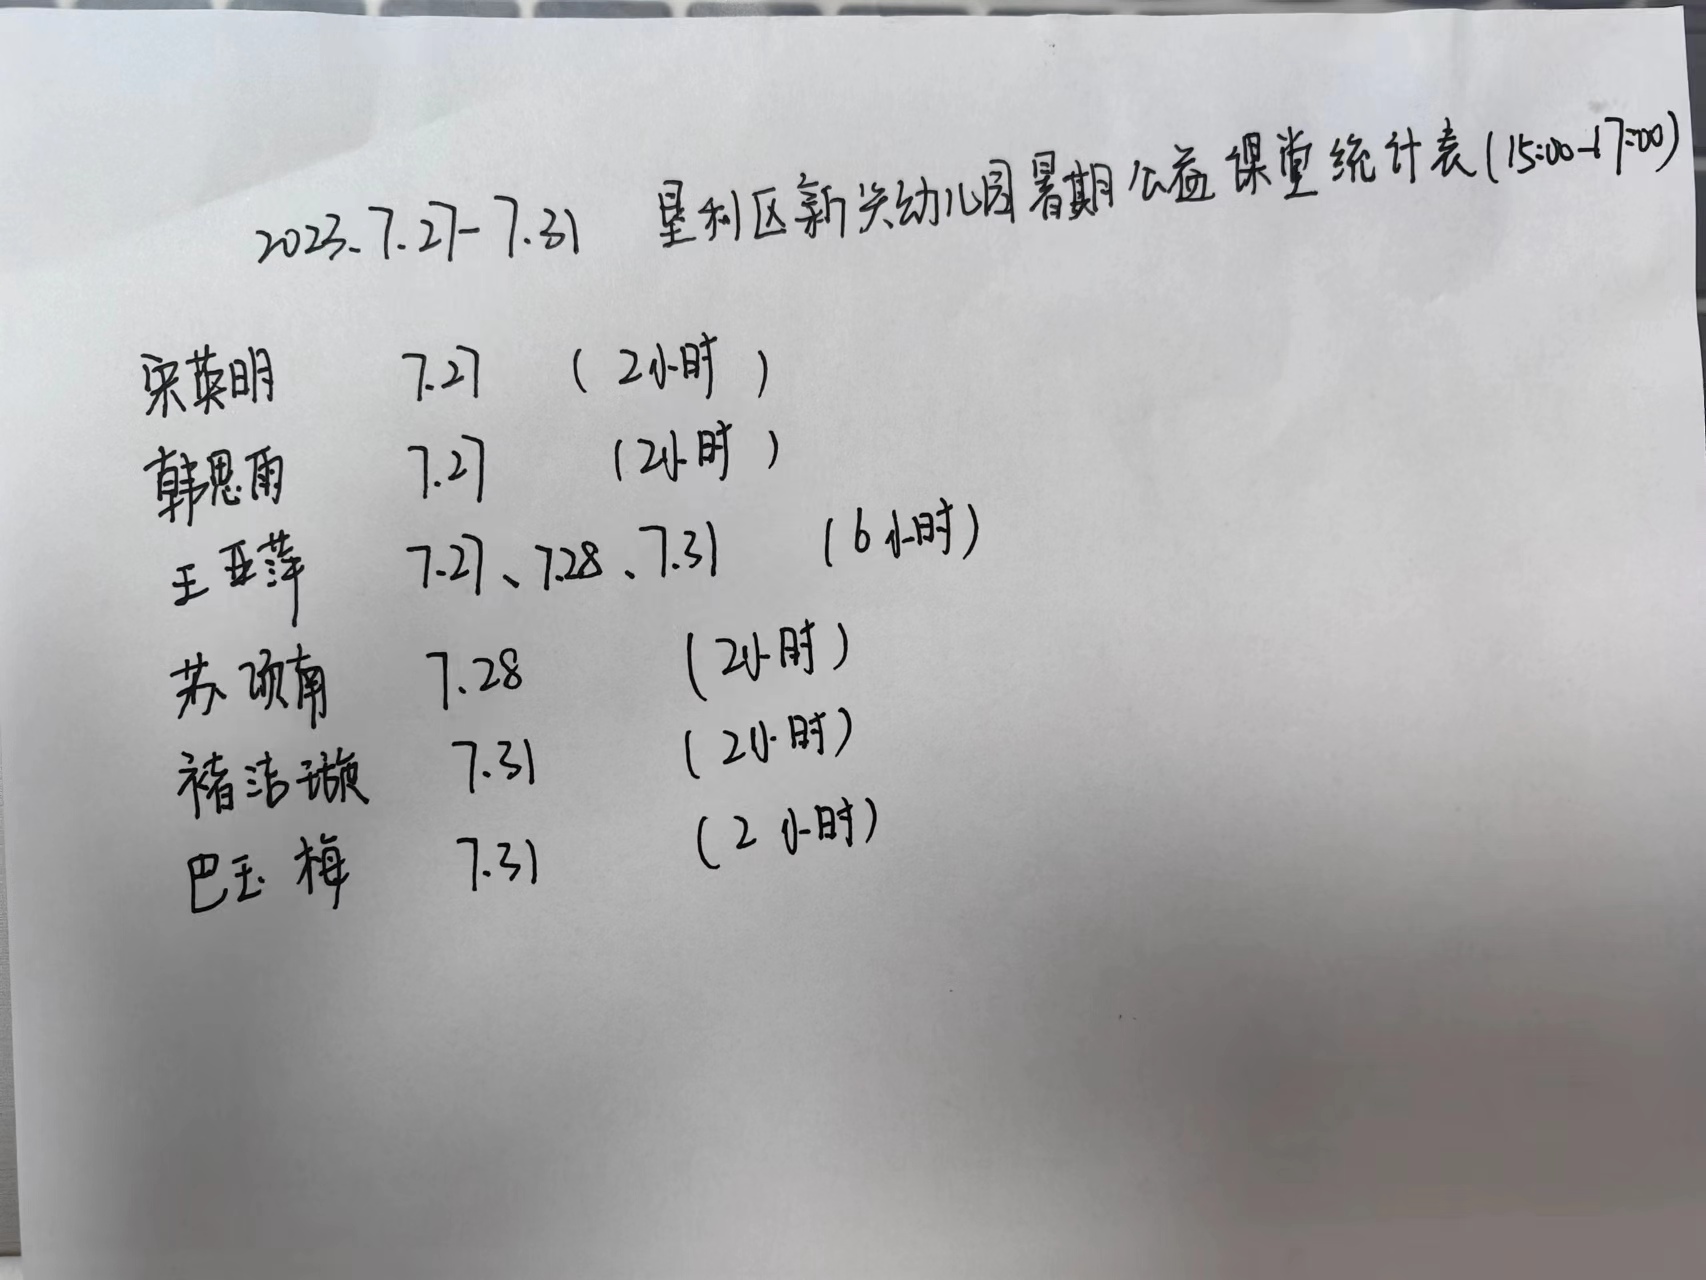 2023.7.27-7.31 垦利区新兴幼儿园暑期公益课堂统计表(15:00-17:00)
宋英明 7.27 (2小时)
韩思雨 7.27 (2小时)
王亚萍 7.27、7.28、7.31 (6小时)
苏项南 7.28 (2小时)
褚洁璇 7.31 (2小时)
巴玉梅 7.31 (2小时)